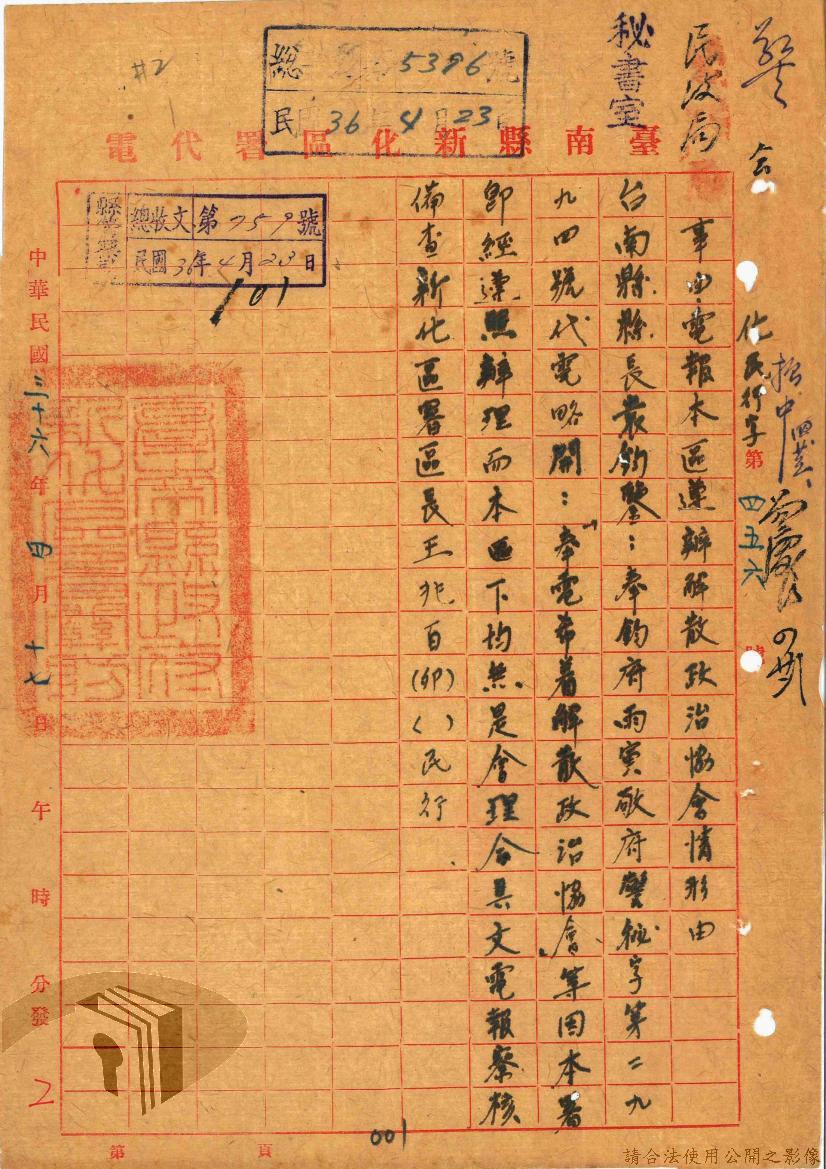 民政局
秘書室
總 5396號
民國36年4月23日
臺南縣新化區署代電
化民行字第四五六號
事由：電報本區遵辦解散政治協會情形由
台南縣縣長袁鈞鑒：奉鈞府丙寅敬府警秘字第二九
九四號代電略開：「奉電希着解散政治協會」等因本署
卽經遵照辦理而本區下均無是會理合具文電報察核
備查新化區署區長王兆百(卯)( )民行
總收文第759號
民國36年4月23日
101
中華民國三十六年四月十七日午時分發
2
第 頁
001
#2
請合法使用公開之影像